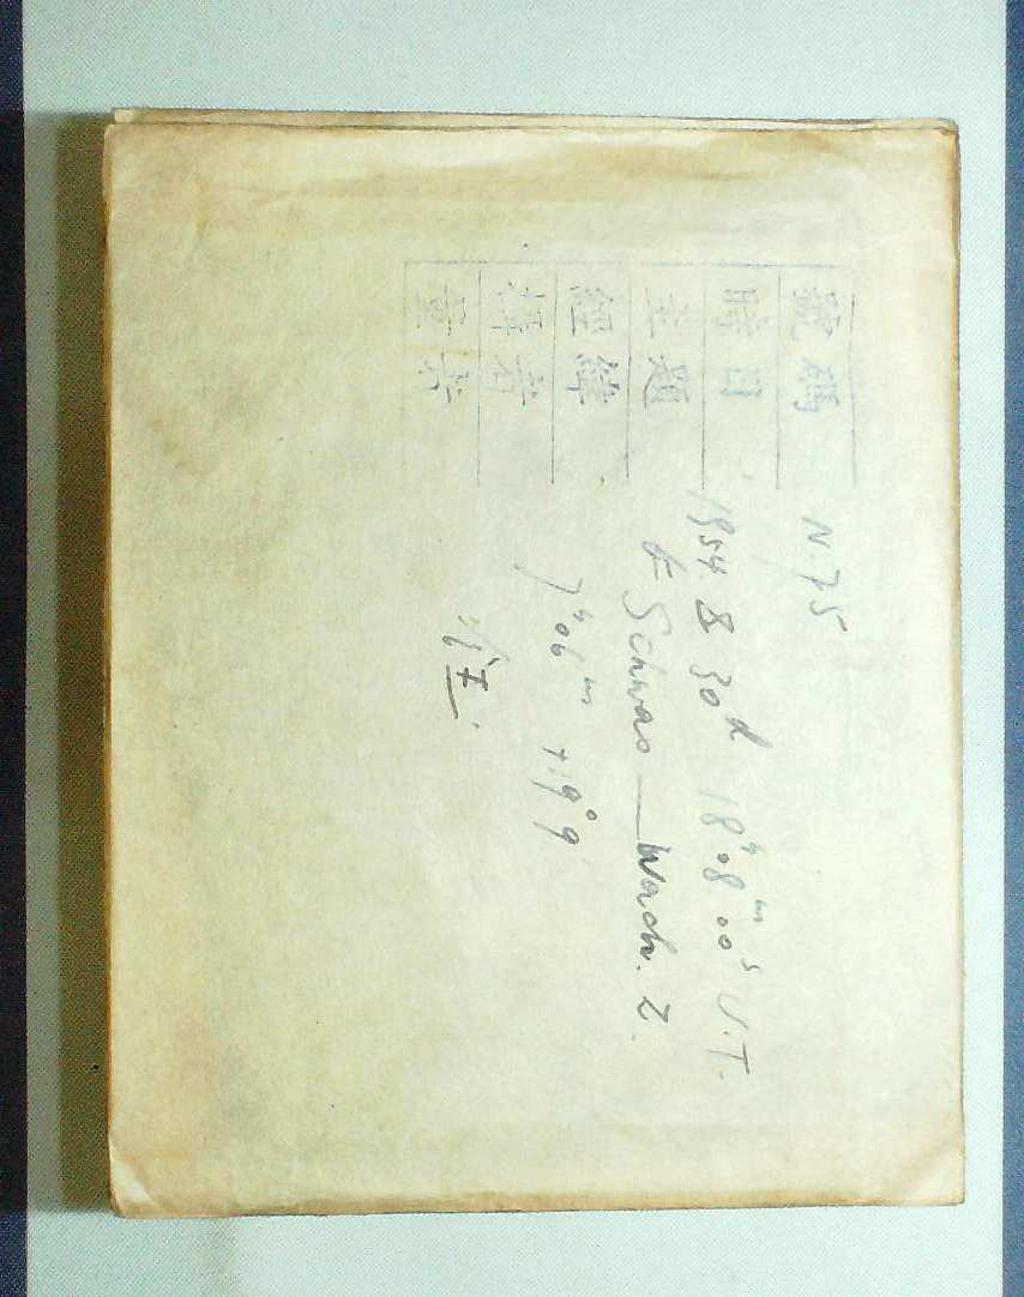 號碼 N 75
時日 1954. X 30ᵈ 18ʰ08ᵐ00ˢ U.T.
主題 Schwas — Wach. 2.
經緯 7ʰ06ᵐ +19°9
攝者